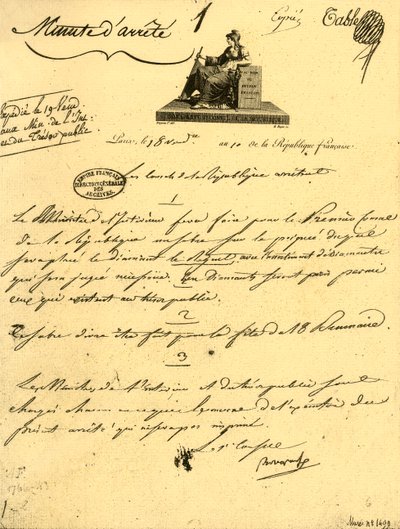 Minute d'arrêté
1
Copié
Table
Expédié le 19 Vend
aux Min. de l'Int.
et du Trésor public
AU NOM DU PEUPLE FRANÇAIS
Paris, le 18 Vend.re an 10 de la République française.
Les Consuls de la République arrêtent
EMPIRE FRANÇAIS
DIRECTION GÉNÉRALE DES ARCHIVES
1
Le Ministre de l'Intérieur fera faire pour le Premier Consul
de la République un sabre sur la poignée duquel
sera placé le diamant le Régent, avec l'assortiment de diamants
qui sera jugé nécessaire. Ces Diamants seront pris parmi
ceux qui existent au trésor public.
2
Ce sabre devra être fait pour la fête du 18 Brumaire.
3
Les Ministres de l'intérieur et du trésor public sont
chargés chacun en ce qui le concerne de l'exécution du
présent arrêté qui ne sera pas imprimé
Le 1er Consul
Bonaparte
1
Musée n° 1499